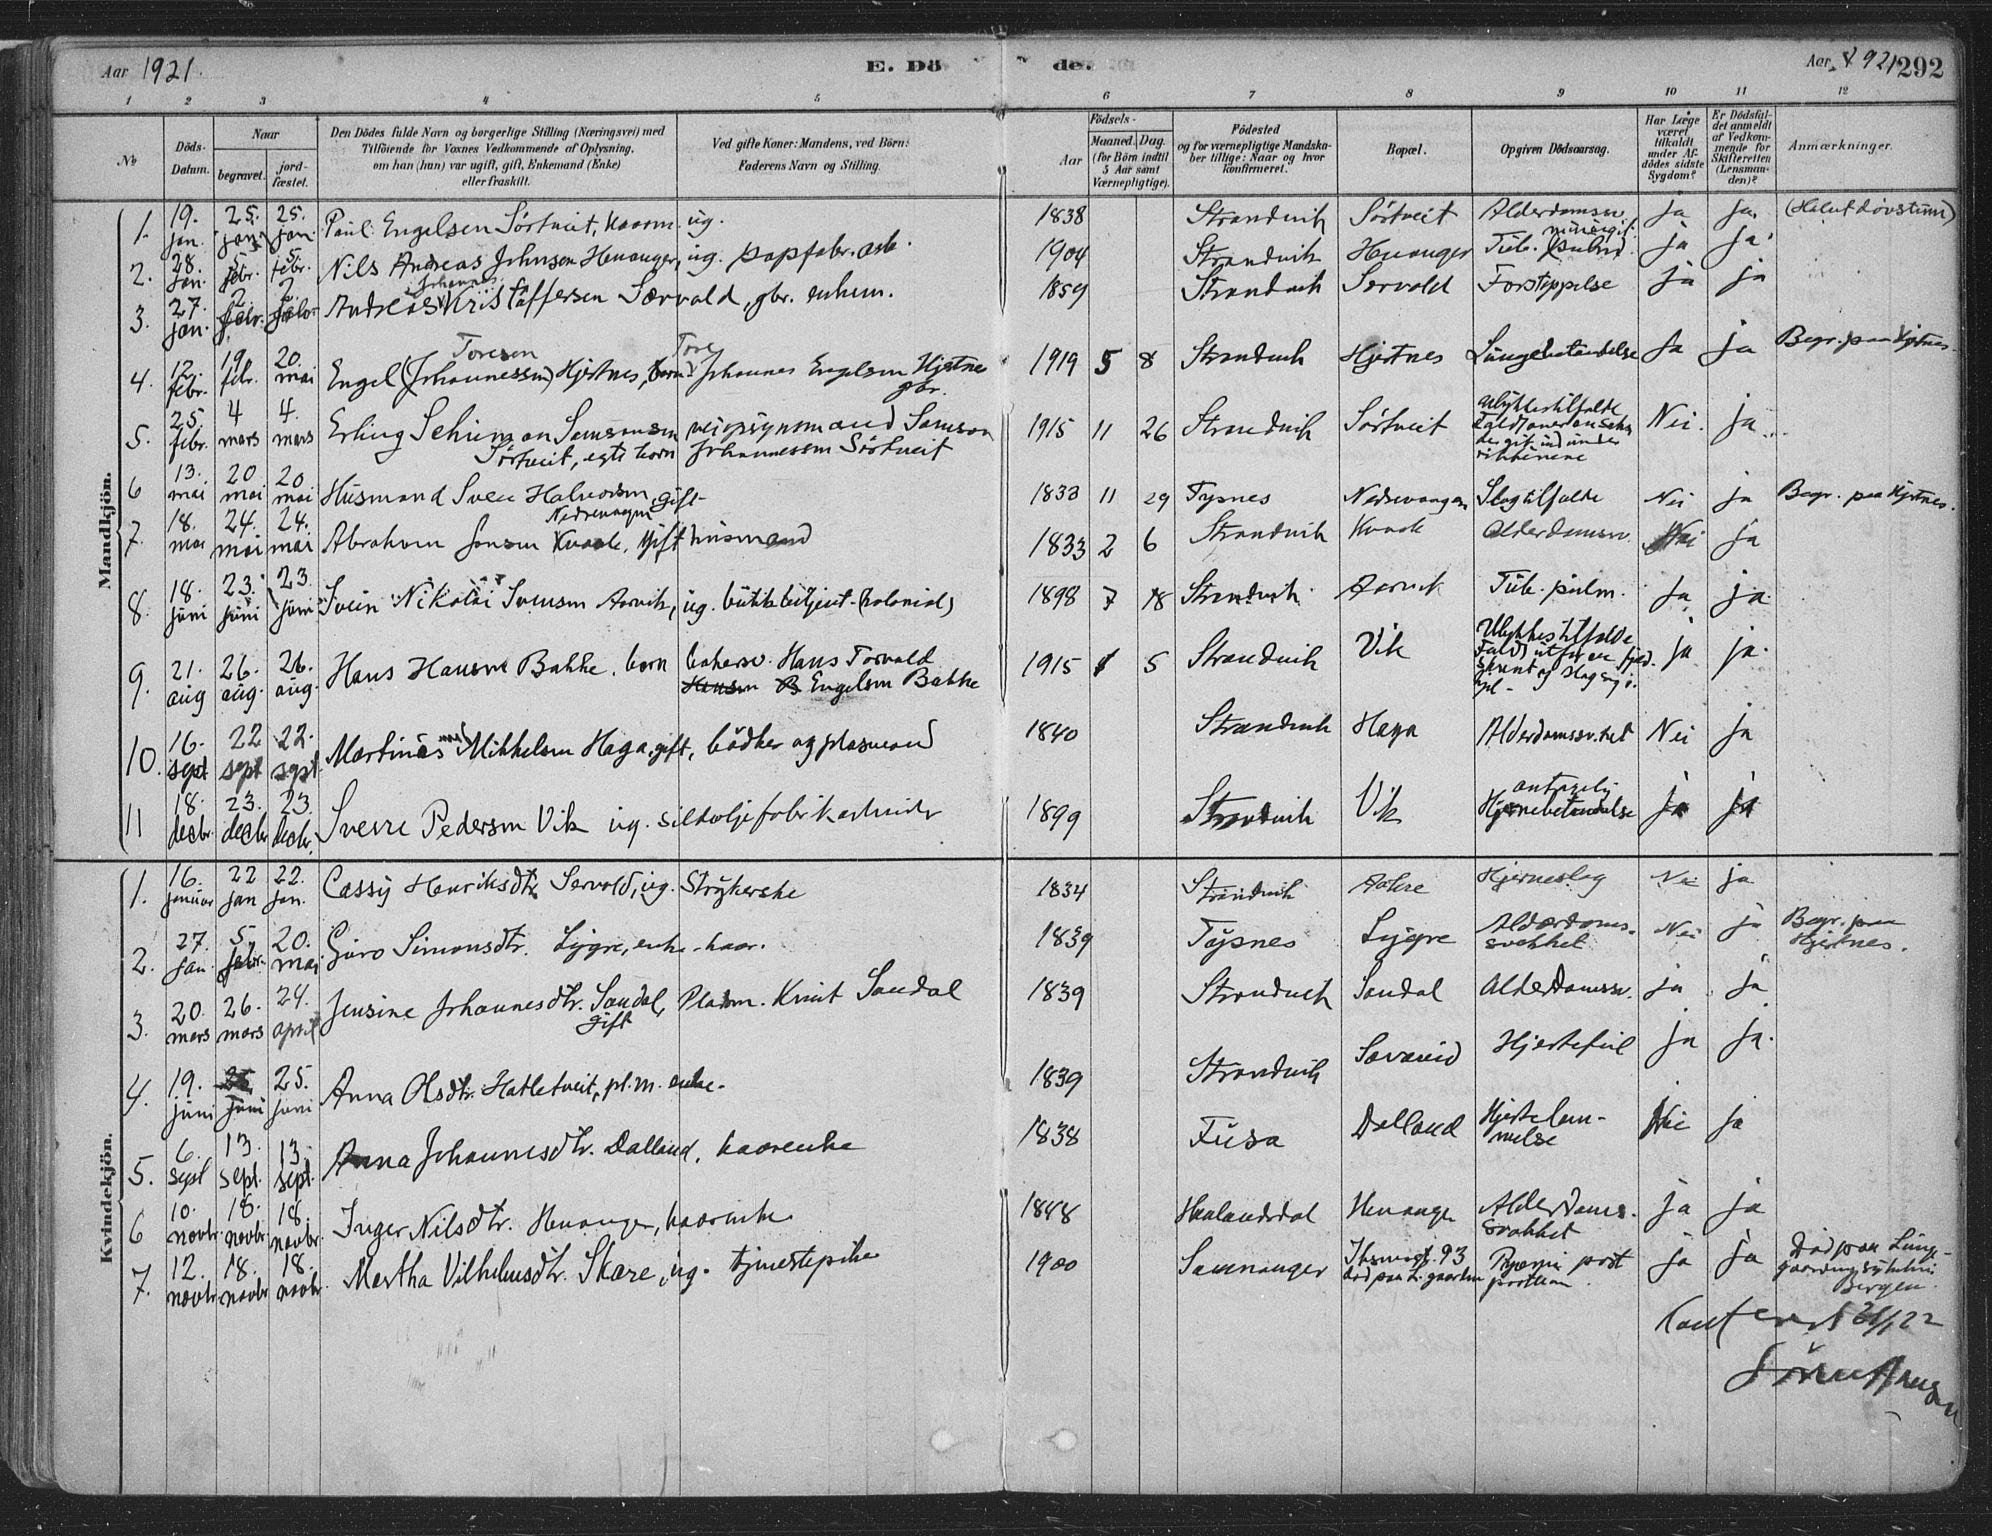 Aar 1921.
E. Dö de.
Aar 1921 292
1 2 3 4 5 6 7 8 9 10 11 12
No
Döds-Datum.
Naar
begravet.
jordfæstet.
Den Dödes fulde Navn og borgerlige Stilling (Næringsvei) med
Tilföiende for Voxnes Vedkommende af Oplysning,
om han (hun) var ugift, gift, Enkemand (Enke)
eller fraskilt.
Ved gifte Koner: Mandens, ved Börn:
Faderens Navn og Stilling.
Födsels-
Aar
Maaned. Dag.
(for Börn indtil
5 Aar samt
Værnepligtige).
Födested
og for værnepligtige Mandskaber tillige: Naar og hvor
konfirmeret.
Bopæl.
Opgiven Dödsaarsag.
Har Læge
været
tilkaldt
under Afdödes sidste
Sygdom?
Er Dödsfaldet anmeldt
af Vedkommende for
Skifteretten
(Lensmanden)?
Anmærkninger.
Mandkjön.
1. 19. jan. 25. jan. 25. jan. Paul Engelsen Sörtveit, kaarm. ug. 1838 Strandvik Sörtveit Alderdomssv. ja ja. (Halvt døvstum)
2. 28. jan. 5. febr. 5. febr. Nils Andreas Johnson Henanger, ug. papfabr.arb. 1904 Strandvik Henanger Tub. pulm. ja ja.
3. 27. jan. 2. febr. 2. febr. Andreas Johannes Kristoffersen Særvold, gbr. enkem. 1859 Strandvik Servold Forstoppelse ja ja
4. 12. febr. 19. febr. 20. mai Engel Toresen (Johannessen) Hjertnes, barn Tore Johannes Engelsen Hjertnes gbr. 1919 5 8 Strandvik Hjertnes Lungebetændelse Ja ja Begr. paa Hjertnes.
5. 25. febr. 4 mars 4. mars Erling Schuman Samsonsen Sörtveit, egte barn veiopsynsmand Samson Johannessen Sörtveit 1915 11 26 Strandvik Sörtveit Ulykkestilfælde Nei. ja
6 13. mai 20 mai 20 mai Husmand Sven Halvorsen Nedrevaagen gift 1833 11 29 Tysnes Nedrevaagen Slagtilfælde Nei ja Begr. paa Hjertnes.
7. 18. mai 24. mai 24. mai Abraham Jonsen Kvaale, gift husmand 1833 2 6 Strandvik Kvaale Alderdomssv. Nei ja
8. 18. juni 23. juni 23. juni Svein Nikolai Svensen Aarvik, ug. butikbetjent (kolonial) 1898 7 18 Strandvik Aarvik Tub. pulm. Ja ja.
9. 21. aug 26. aug. 26. aug. Hans Hansen Bakke, barn bakersv. Hans Torvald Engelsen Bakke 1915 5 Strandvik Vik Ulykkestilfælde ja ja.
10. 16. sept 22 sept 22. sept. Martinus Mikkelsen Haga, gift, bödker og plasmand 1840 Strandvik Haga Alderdomssv.het Nei ja
11 18. decbr. 23. decbr 23. decbr. Sverre Pedersen Vik ug. sildoljefabrikarbeider 1899 Strandvik Vik antagelig Hjernebetændelse ja ja
Kvindekjön.
1. 16. januar 22 jan 22. jan. Cassy Henriksdtr Servold, ug. Strykerske 1834 Strandvik Aakre Hjerneslag Nei ja
2. 27. jan. 5. febr. 20. mai Guro Simonsdtr. Lygre, enke - kaar. 1839 Tysnes Lygre Alderdomssvakhet Nei ja Begr. paa Hjertnes.
3. 20. mars 26. mars 24. april Jensine Johannesdtr. Sandal, gift Pladsm. Knut Sandal 1839 Strandvik Sandal Alderdomssv. ja ja
4. 19. juni juni 25. juni Anna Olsdtr. Hatletveit, pl.m. enke. 1839 Strandvik Sævareid Hjertefeil ja ja.
5. 6. sept 13. sept. 13. sept. Anna Johannesdtr. Dalland, kaarenke 1838 Fusa Dalland Hjertelammelse Nei ja
6 10. novbr. 18. novbr. 18. novbr. Inger Nilsdtr. Henanger, kaarenke 1848 Haalandsdal Henanger Alderdomssvakhet ja ja
7. 12. novbr 18. novbr 18. novbr. Martha Vilhelmsdtr. Skare, ug. tjenestepike 1900 Samnanger Pyæmi post partum ja ja Død paa Lungegaardens sykehus Bergen.
Conferert 21/1 22